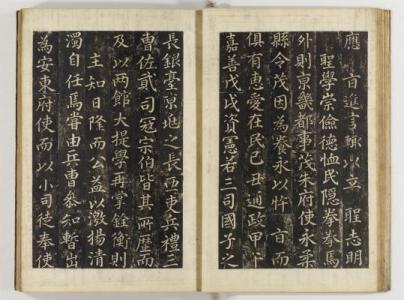 應旨進言輙以立聖志明
聖學崇儉德恤民隱拳拳焉
外則京畿都事茂朱府使永柔
縣令茂因為養永以忤旨而
俱有惠愛在民已丑通政甲午
嘉善戊戌資憲若三司國子之
長銀臺京地之長西東兵禮三
曹佐貳司寇宗伯皆其所歷而
及以兩館大提學再掌銓衡則
主知日隆而公益以激揚清
濁自任焉嘗由兵曹叅知暫出
為安東府使而以小司徒奉使